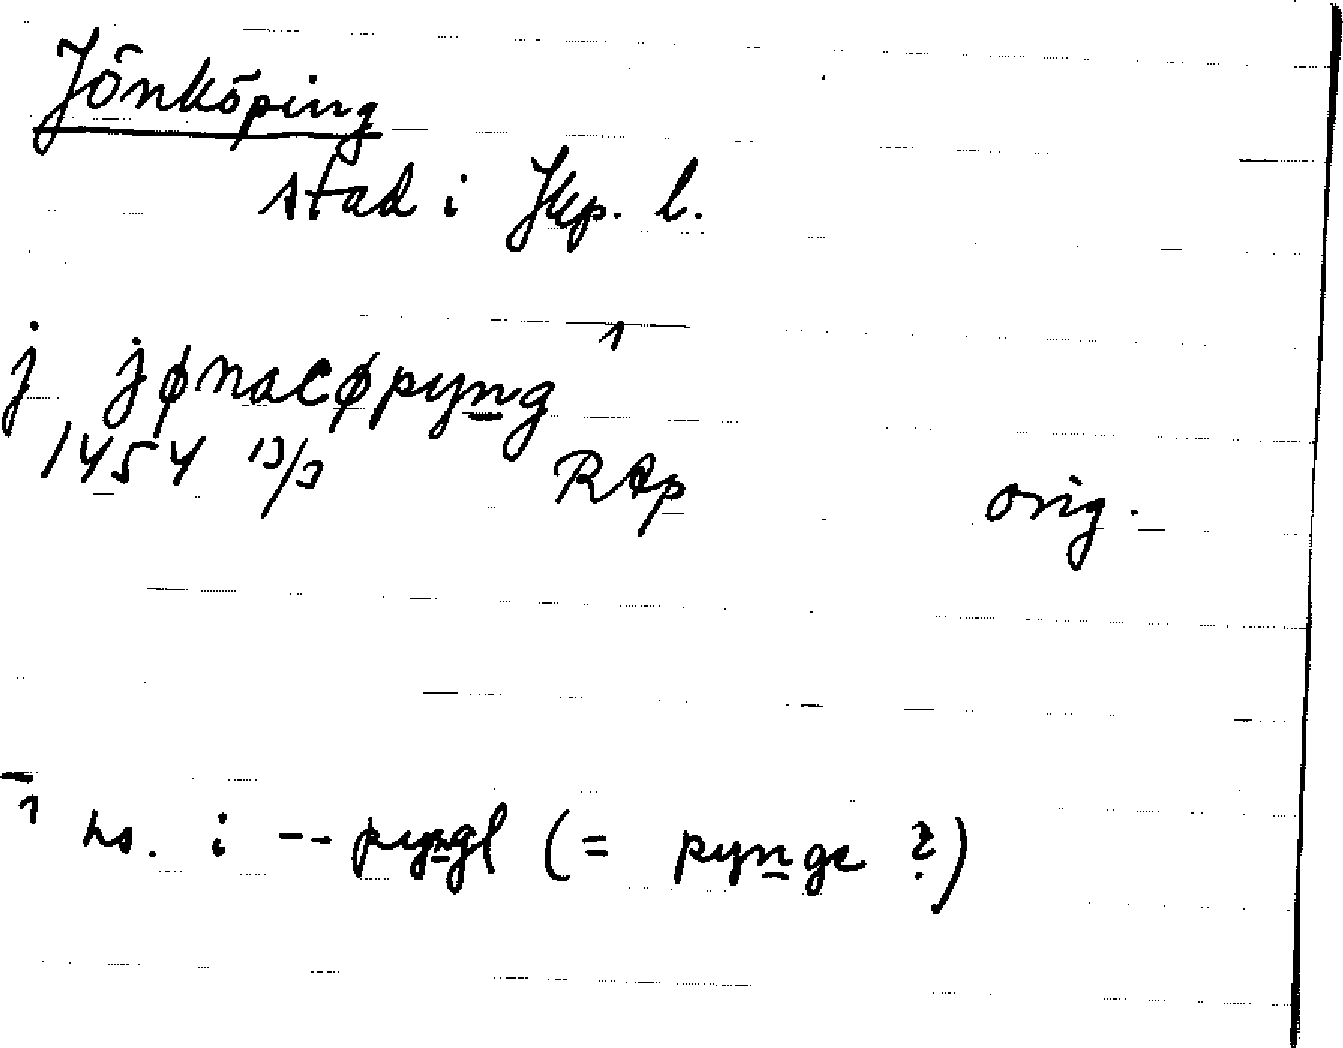 Jönköping
stad i Jkp. l.
j jønacøpyng 1
1454 13/3 RAp orig.
1 hs. i -- pyngl (= pynge ?)